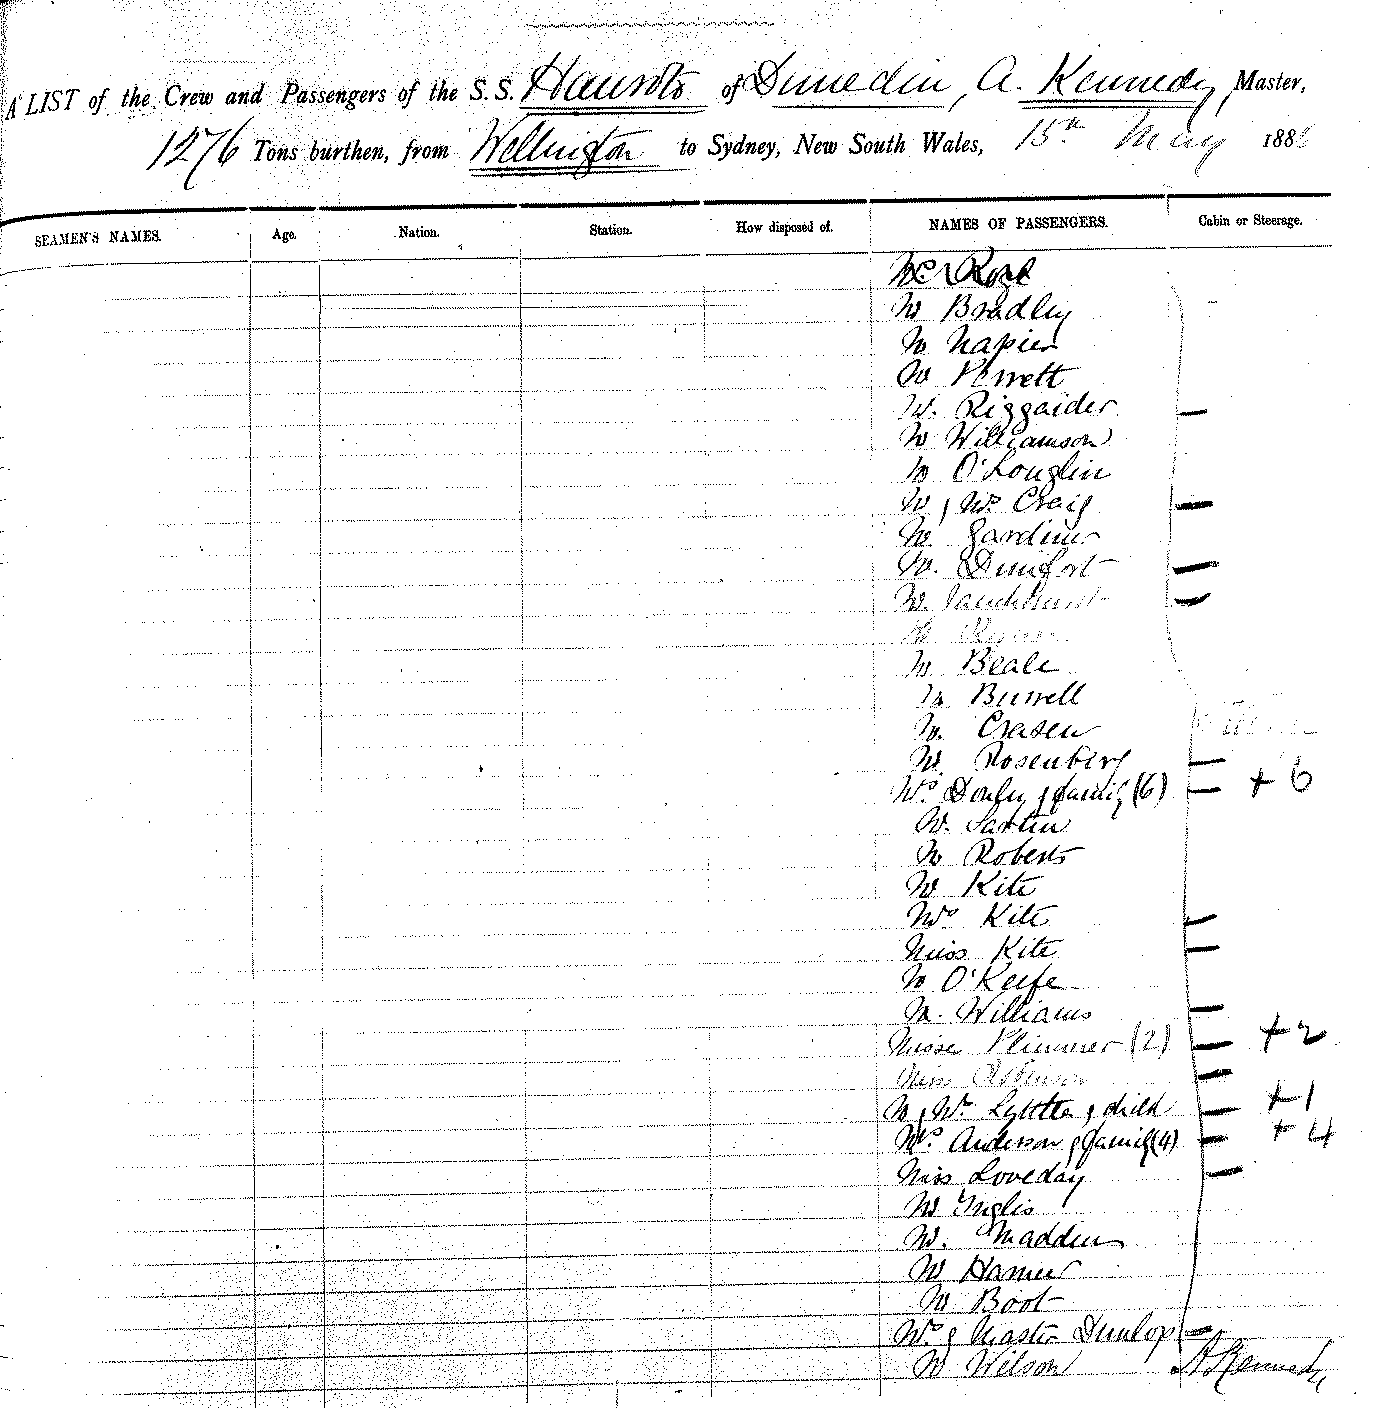 A LIST of the Crew and Passengers of the S.S. Hauroto of Dunedin, A. Kennedy, Master,
1276 Tons burthen, from Wellington to Sydney, New South Wales, 15th May 188
SEAMEN'S NAMES. Age. Nation. Station. How disposed of. NAMES OF PASSENGERS. Cabin or Steerage.
Mr Bradley
Mr Napier
Mr Perrett
Mr. Riggaider
Mr Williamson
Mr O'Loughlin
Mr & Mrs Craig
Mr Gardiner
Mr. Dunfort
Mr.
Mr
Mr Beale
Mr Burrell
Mr. Crasen
Mr. Rosenberg
Mrs & family (6) + 6
Mr.
Mr Roberts
Mr Kite
Mrs Kite
Miss Kite
Mr O'Keefe
Mr. Williams
Misses Plimmer (2) + 2
Miss Robinson
Mr & Mrs Lyttle & child + 1
Mrs. Anderson & family (4) + 4
Miss Loveday
Mr Inglis
Mr. Madden
Mr Hamer
Mr Boot
Mrs & Master Dunlop
Mr Wilson A Kennedy